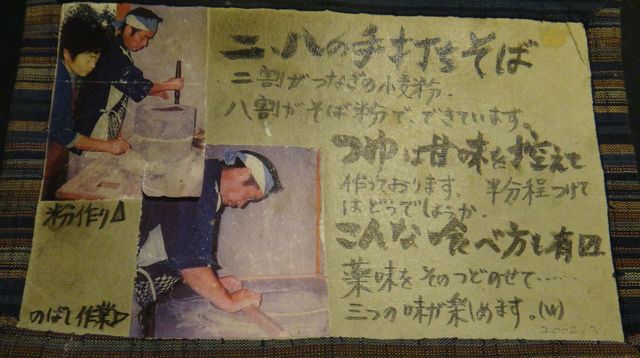 二、八の手打ちそば
二割がつなぎの小麦粉.
八割がそば粉で、できています。
つゆは甘味を控えて
作っております。 半分程つけて
はどうでしょうか.
こんな喰べ方も有り
薬味をそのつどのせて……
三つの味が楽しめます。
粉作り△
のばし作業▷
2002.3.